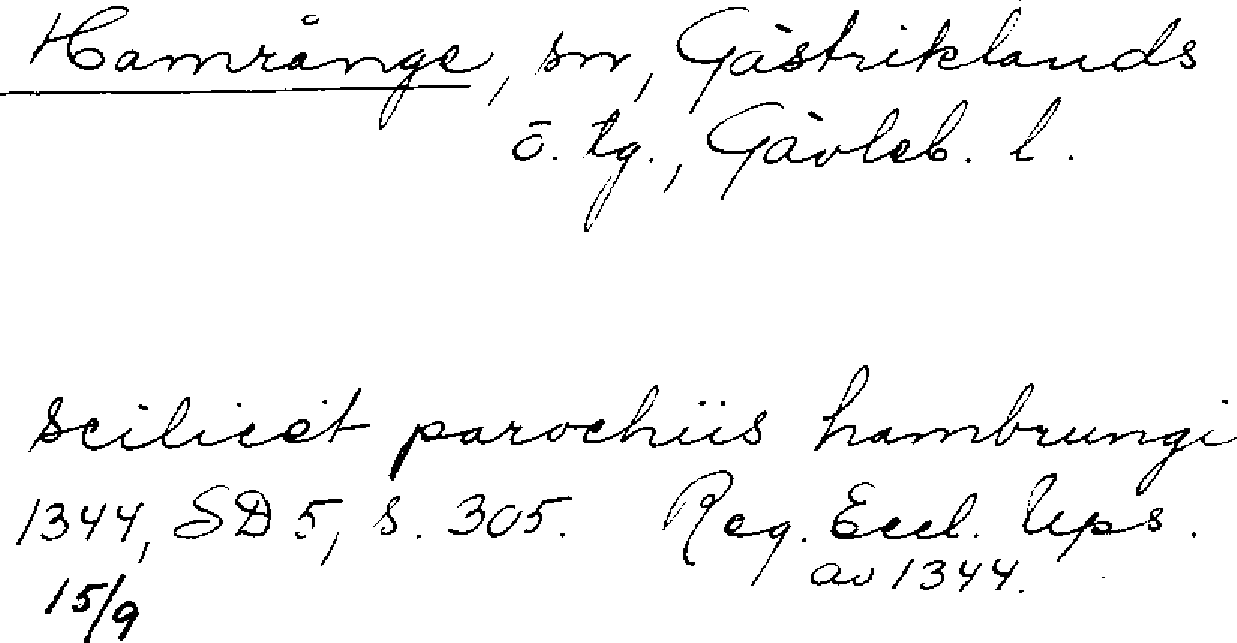 Hamrånge, sn, Gästriklands
ö. tg., Gävleb. l.
scilicet parochiis hambrungi
1344, SD 5, s. 305. Reg. Eccl. Ups.
av 1344.
15/9